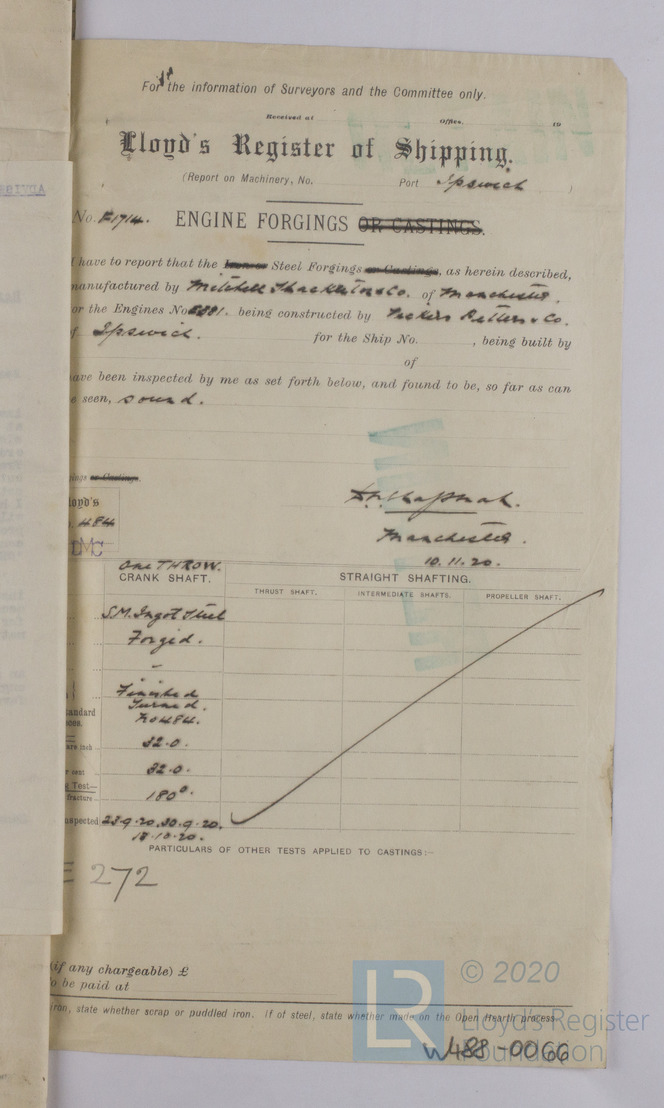 For the information of Surveyors and the Committee only.
Received at Office, 19
Lloyd's Register of Shipping.
(Report on Machinery, No. Port Ipswich )
No. ENGINE FORGINGS OR CASTINGS.
have to report that the Steel Forgings or Castings, as herein described,
manufactured by Mitchell Shackleton & Co. of Manchester,
or the Engines No 5381. being constructed by & Co.
of Ipswich. for the Ship No. , being built by
of
have been inspected by me as set forth below, and found to be, so far as can
e seen, sound.
ings or Castings.
loyd's
484
LMC
Manchester.
10.11.20.
One THROW.
CRANK SHAFT. STRAIGHT SHAFTING.
THRUST SHAFT. INTERMEDIATE SHAFTS. PROPELLER SHAFT.
S.M. Ingot Steel
Forged.
-
Finished
Turned.
tandard No 484.
are inch 32.0.
r cent 32.0.
Test—
fracture 180°.
nspected 23.9.20. 30.9.20.
18.10.20.
PARTICULARS OF OTHER TESTS APPLIED TO CASTINGS:—
E 272
(if any chargeable) £
o be paid at
iron, state whether scrap or puddled iron. If of steel, state whether made on the Open Hearth process.
LR © 2020
Lloyd's Register
Foundation
W488-0066